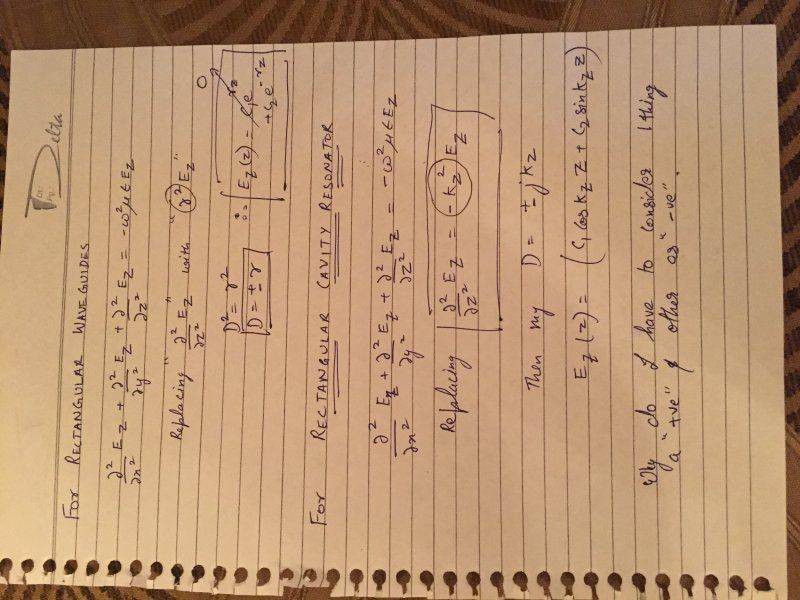 Delta
FOR RECTANGULAR WAVEGUIDES
∂²/∂x² Ez + ∂²/∂y² Ez + ∂²/∂z² Ez = -ω²μϵ Ez
Replacing "∂²/∂z² Ez" with "γ² Ez"
D² = γ²
D = ±γ
∴ Ez(z) = C₁e^γz + C₂e^-γz
0
FOR RECTANGULAR CAVITY RESONATOR
∂²/∂x² Ez + ∂²/∂y² Ez + ∂²/∂z² Ez = -ω²μϵ Ez
Replacing ∂²/∂z² Ez = -kz² Ez
Then my D = ±jkz
Ez(z) = (C₁ cos kz z + C₂ sin kz z)
Why do I have to consider 1 thing
a "+ve" & other as "-ve".